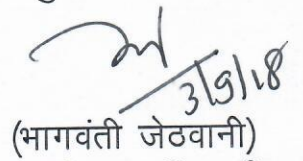 3/9/18
(भागवंती जेठवानी)